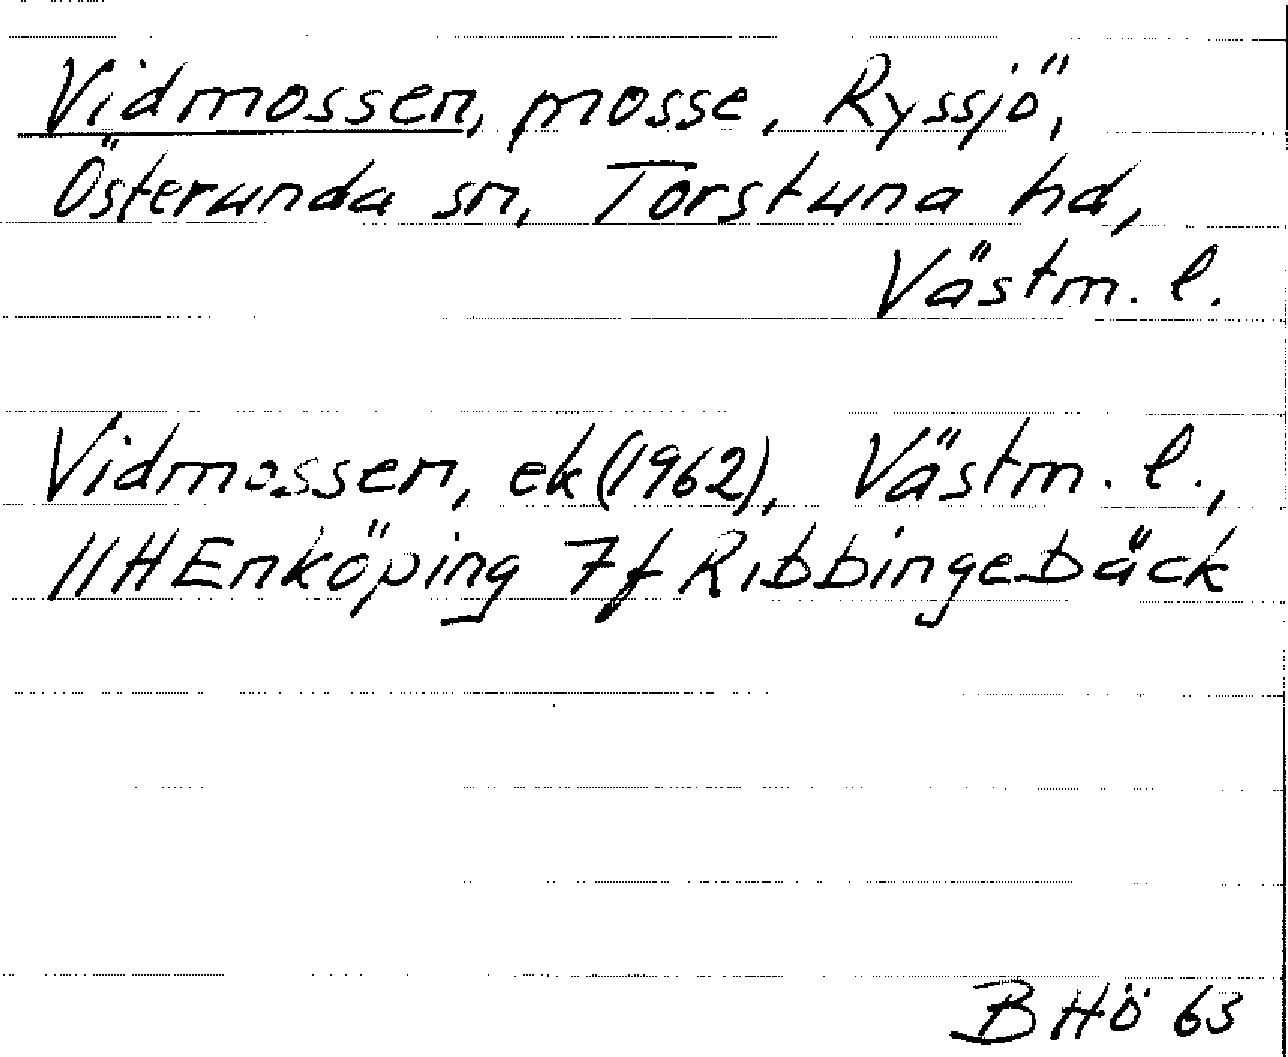 Vidmossen, mosse, Ryssjö,
Österunda sn, Torstuna hd,
Västm. l.
Vidmossen, ek (1962), Västm. l.,
11H Enköping 7f Ribbingebäck
B Hö 63